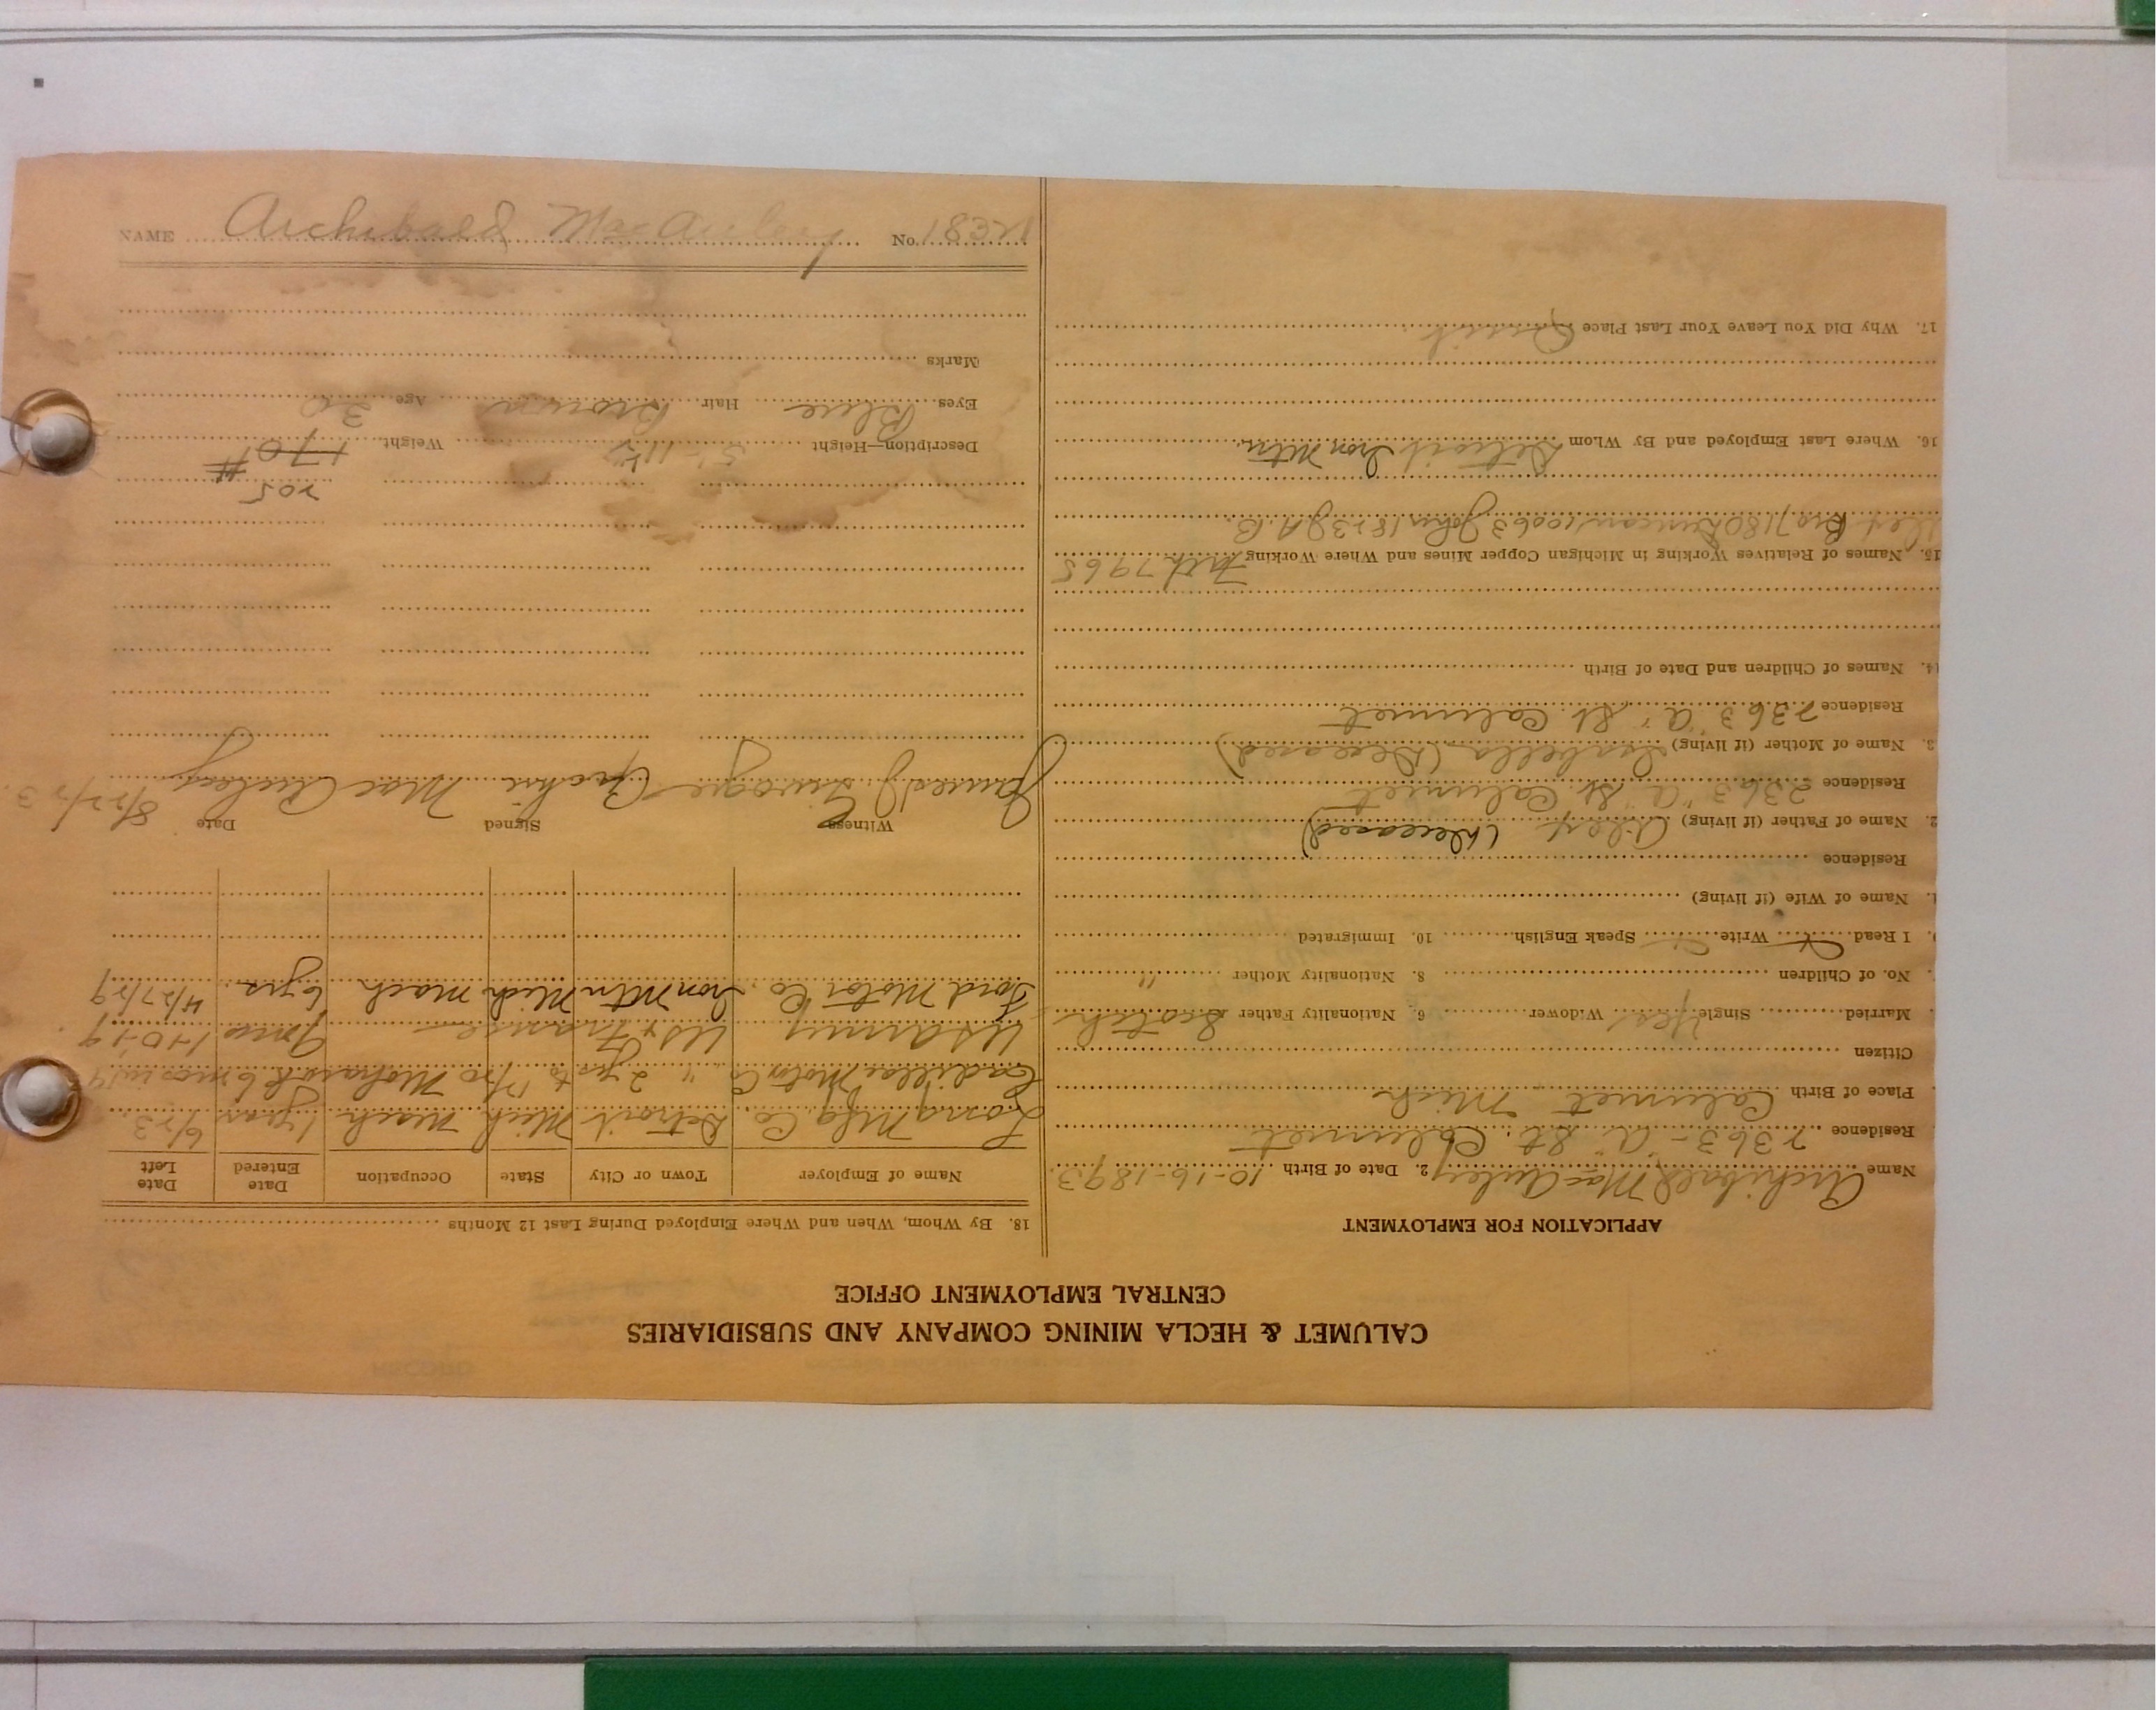 CALUMET & HECLA MINING COMPANY AND SUBSIDIARIES
CENTRAL EMPLOYMENT OFFICE
APPLICATION FOR EMPLOYMENT
Name Archibald MacAuley 2. Date of Birth 10-16-1893
Residence 2363 - "A" St. Calumet
Place of Birth Calumet Mich
Citizen
Married Single Yes Widower 6. Nationality Father Scotch
No. of Children 8. Nationality Mother "
9. I Read Write Speak English 10. Immigrated
1. Name of Wife (if living)
Residence
2. Name of Father (if living) Alex (Deceased)
Residence 2363 "A" St. Calumet
3. Name of Mother (if living) Isabella (Deceased)
Residence 2363 "A" St. Calumet
14. Names of Children and Date of Birth
15. Names of Relatives Working in Michigan Copper Mines and Where Working Fath 7965
Bro 7180 Duncan 10063 John 18238 A.B.
16. Where Last Employed and By Whom Detroit Iron Mtn.
17. Why Did You Leave Your Last Place Quit
18. By Whom, When and Where Employed During Last 12 Months
Name of Employer Town or City State Occupation Date Entered Date Left
Long Mfg. Co. Detroit Mich Mach 1 year 6/23
Cadillac Motor Co " 2 yrs to 6 mos
US Army US & France 9 mo 1-10-19
Ford Motor Co. Iron Mtn Mich Mach 6 yrs. 4/27/29
Witness Signed Date
James J. Archie MacAuley 8/22/23.
205
Description—Height 5'-11½ Weight 170#
Eyes Blue Hair Brown Age 30
Marks
NAME Archibald MacAuley No. 18321